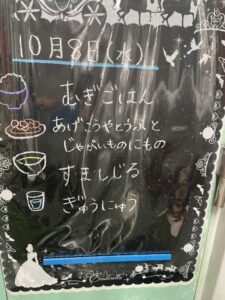 10月8日(水)
むぎごはん
あげこうやとうふと
じゃがいものにもの
すましじる
ぎゅうにゅう